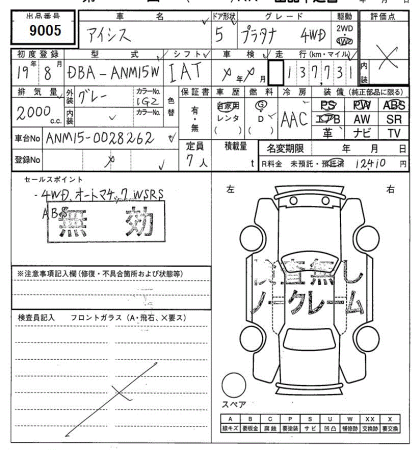 出品番号 車名 ドア形状 グレード 駆動 評価点
9005 アイシス 5 プラタナ 4WD 2WD
初度登録 型式 シフト 車検 走行(km・マイル) 内装
19年8月 DBA-ANM15W IAT 年 月 13773
排気量 外装 グレー カラーNo. 1G2 色替 保証書 車歴 燃料 冷房 装備(純正部品に限る)
2000 c.c. 内装 カラーNo. 有・無 自家用 レンタ G D AAC PS PW ABS
エアB AW SR
革 ナビ TV
車台No ANM15-0028262 定員 7人 積載量 t 名変期限 年 月 日
登録No R料金 未預託・預託済 12410円
セールスポイント
・4WD、オートマチック、WSRS
ABS
無効
左 右
検査無し
ノークレーム
※注意事項記入欄(修復・不具合箇所および状態等)
検査員記入 フロントガラス(A・飛石、X要ス)
スペア
A B C P S U W XX X
線キズ 要板金 腐蝕 要塗装 サビ 凹凸 補修跡 交換跡 要交換